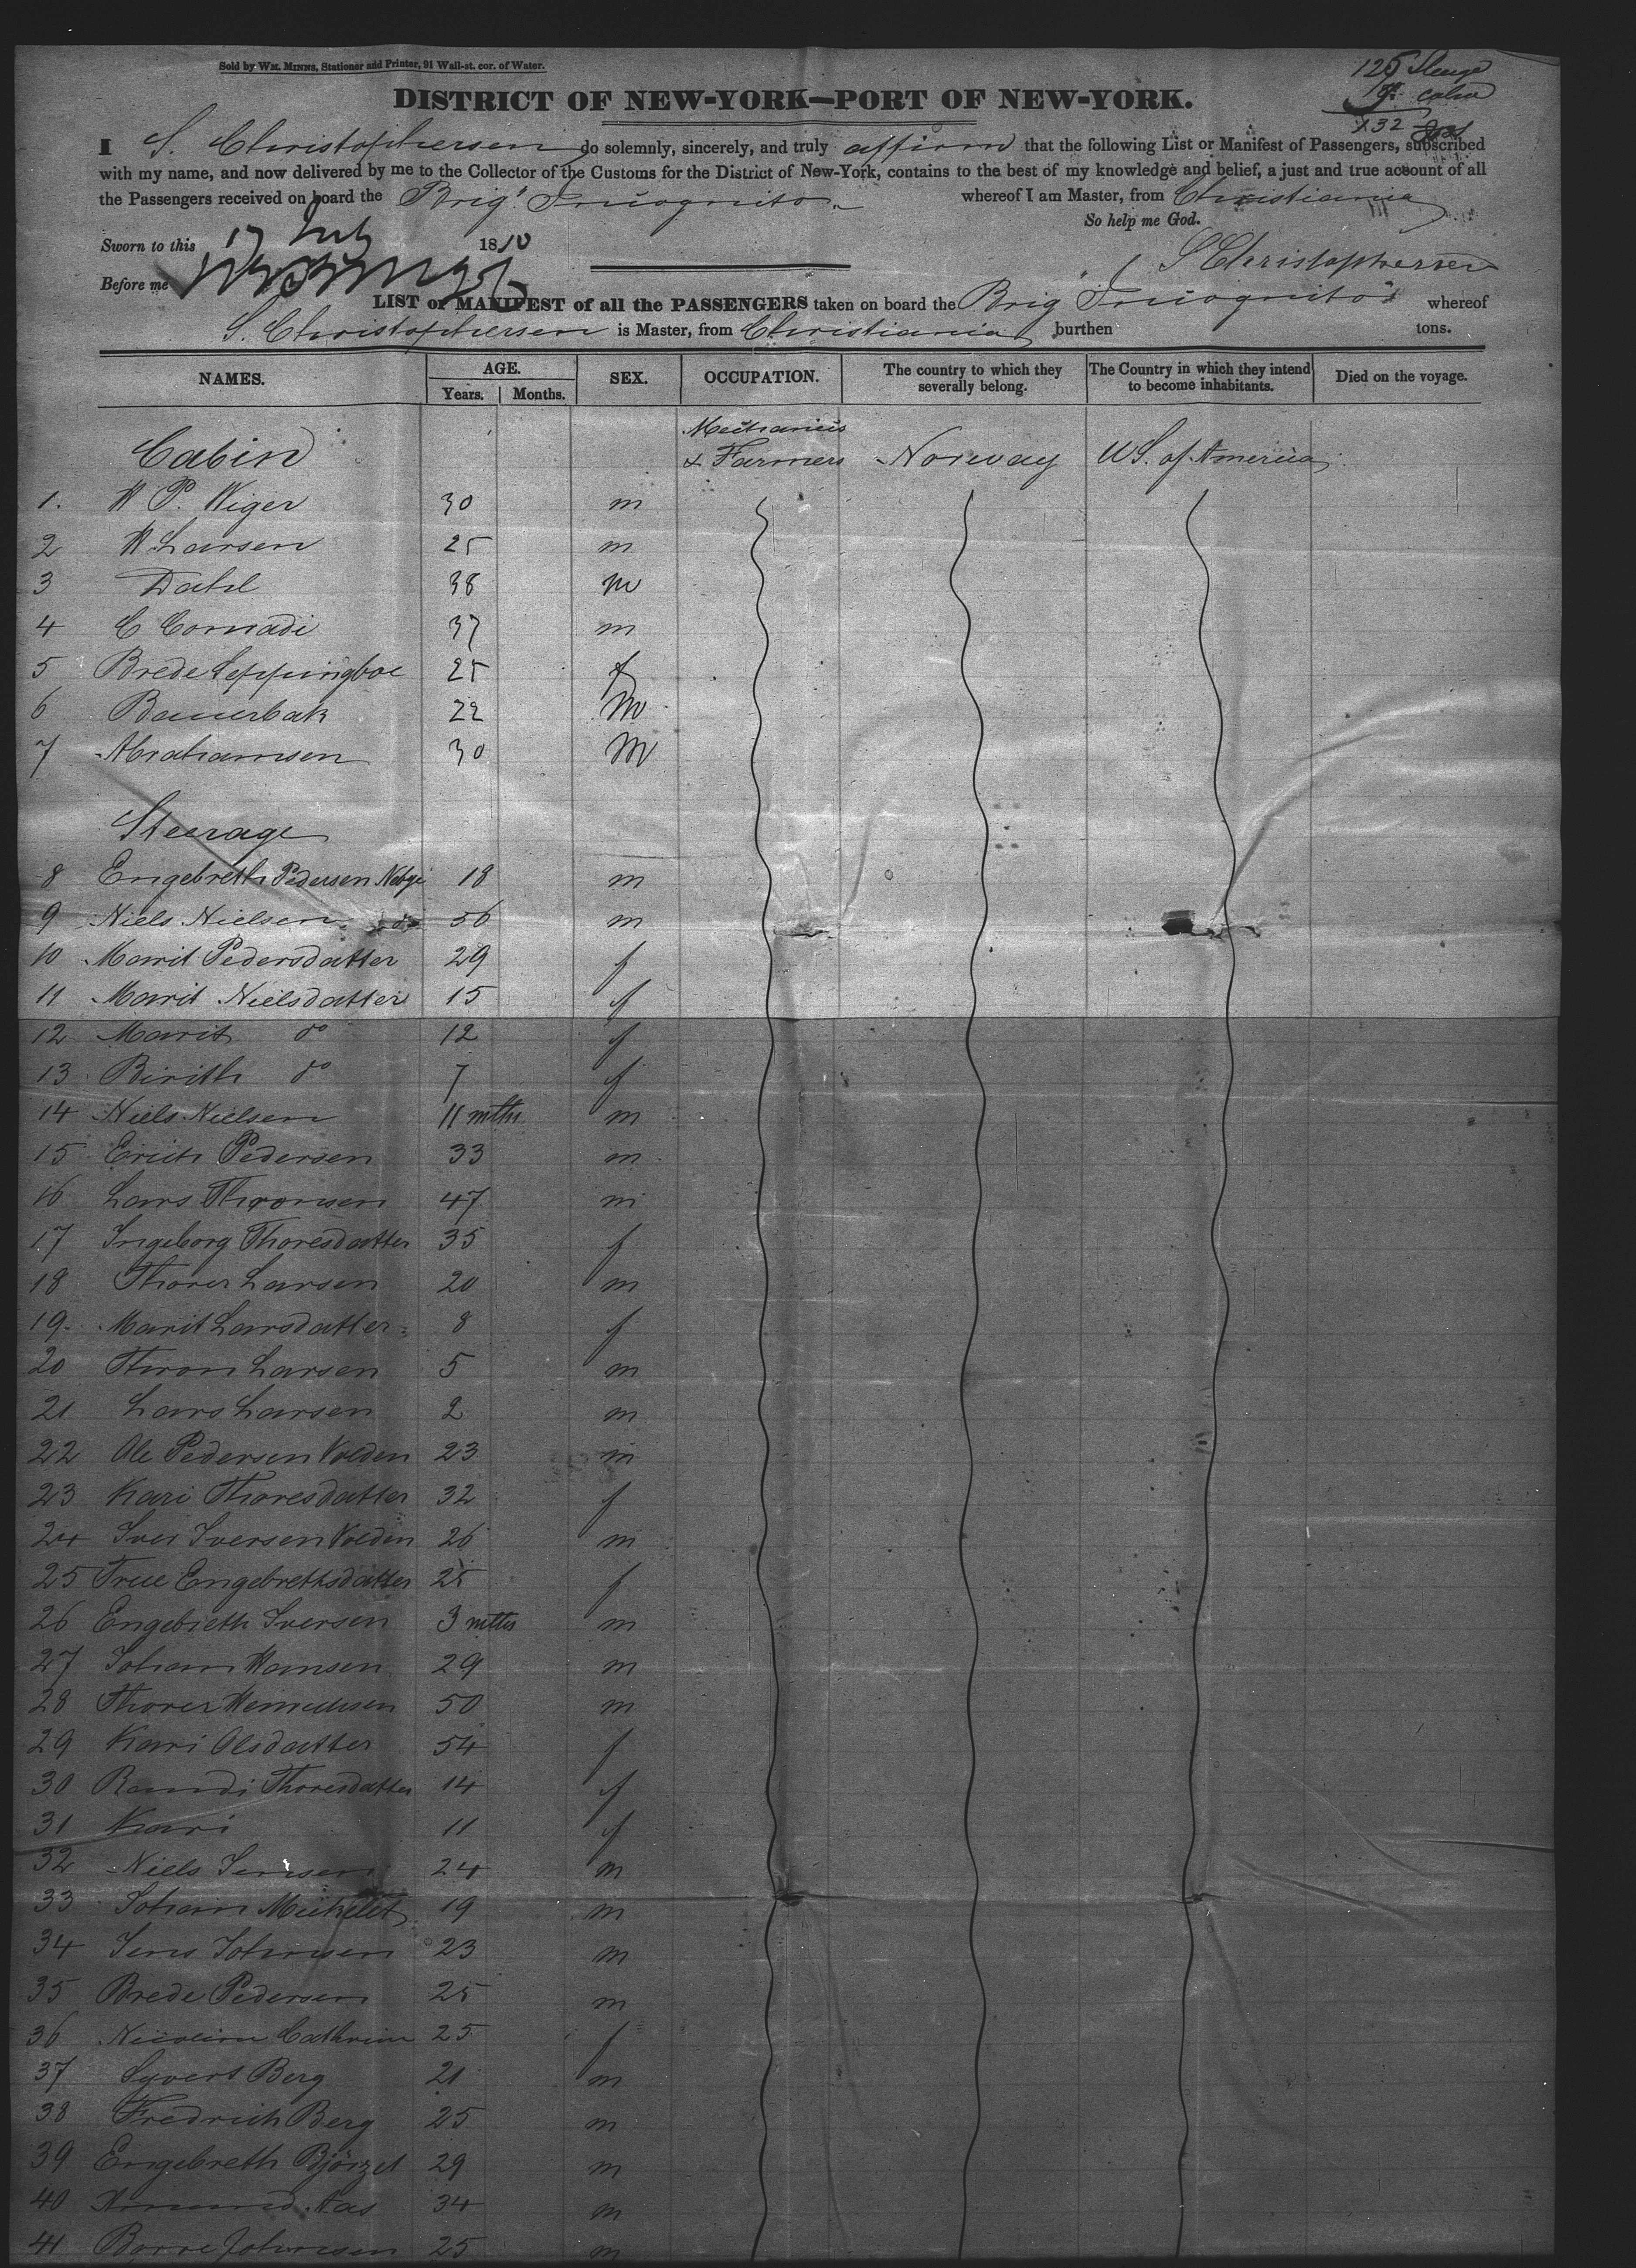 Sold by WM. MINNS, Stationer and Printer, 91 Wall-st. cor. of Water.
125 Steerage
7 cabin
132
DISTRICT OF NEW-YORK—PORT OF NEW-YORK.
I S. Christophersen do solemnly, sincerely, and truly affirm that the following List or Manifest of Passengers, subscribed
with my name, and now delivered by me to the Collector of the Customs for the District of New-York, contains to the best of my knowledge and belief, a just and true account of all
the Passengers received on board the Brig "Incognito" whereof I am Master, from Christiania
So help me God.
Sworn to this 17 July 1850
S Christophersen
Before me
LIST or MANIFEST of all the PASSENGERS taken on board the Brig "Incognito" whereof
S. Christophersen is Master, from Christiania burthen tons.
NAMES. AGE. Years. Months. SEX. OCCUPATION. The country to which they severally belong. The Country in which they intend to become inhabitants. Died on the voyage.
Cabin Mechanics & Farmers Norway US. of America
1. H P. Wiger 30 m
2 H Larsen 25 m
3 Dahl 38 m
4 C Conradi 37 m
5 Brede 25 f
6 Bauerbak 22 m
7 Abrahamsen 30 m
Steerage
8 Engebreth Pedersen 18 m
9 Niels Nielsen do 56 m
10 Marit Pedersdatter 29 f
11 Marit Nielsdatter 15 f
12 Marit do 12 f
13 Birith do 7 f
14 Niels Nielsen 11 mths m
15 Erich Pedersen 33 m
16 Lars Thronsen 47 m
17 Ingeborg Thoresdatter 35 f
18 Thorer Larsen 20 m
19. Marit Larsdatter 8 f
20 Thron Larsen 5 m
21 Lars Larsen 2 m
22 Ole Pedersen Volden 23 m
23 Kari Thoresdatter 32 f
24 Iver Iversen Volden 26 m
25 True Engebrethsdatter 25 f
26 Engebreth Iversen 3 mths m
27 Johan Hansen 29 m
28 Thorer 50 m
29 Kari Olsdatter 54 f
30 Randi Thoresdatter 14 f
31 Kari 11 f
32 Niels Jensen 24 m
33 Johan Michelet 19 m
34 Jens Johnsen 23 m
35 Brede Pedersen 25 m
36 Cathrine 25 f
37 Syvert Berg 21 m
38 Fredrich Berg 25 m
39 Engebreth 29 m
40 Amund Aas 34 m
41 Borre Johnsen 25 m